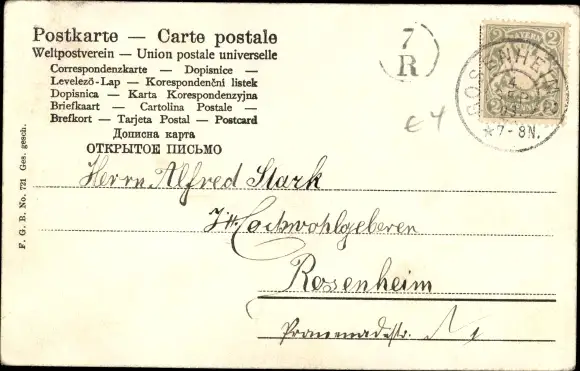 Postkarte — Carte postale
Weltpostverein — Union postale universelle
Correspondenzkarte — Dopisnice —
Levelező-Lap — Korespondenční listek
Dopisnica — Karta Korespondenzyjna
Briefkaart — Cartolina Postale —
Brefkort — Tarjeta Postal — Postcard
Дописна карта
ОТКРЫТОЕ ПИСЬМО
7
R
€4
2 BAYERN 2
ROSENHEIM 2
*7-8N.
F. G. B. No. 721 Ges. gesch.
Herrn Alfred Stark
Hochwohlgeboren
Rosenheim
Promenadestr.